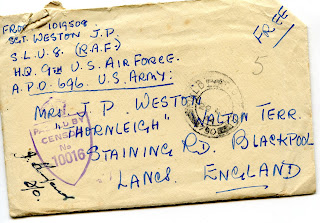 FROM 1019508
SGT. WESTON J.P
S.L.U.8 (R.A.F.)
H.Q. 9TH U.S. AIR FORCE.
A.P.O. 696. U.S. ARMY:
FREE
5
MRS. J P WESTON
"THORNLEIGH" WALTON TERR.
STAINING RD. BLACKPOOL
LANCS. ENGLAND
PASSED BY
CENSOR
No
10016